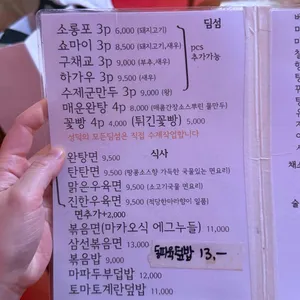 딤섬
소롱포 3p 6,000 (돼지고기)
쇼마이 3p 8,500 (돼지고기,새우)
구채교 3p 9,000 (부추,새우)
하가우 3p 9,500 (새우)
pcs
추가가능
수제군만두 3p 9,000 (왕)
매운완탕 4p 8,000 (매콤간장소스뿌린 물만두)
꽃빵 4p 4,000 (튀긴꽃빵) 5,000
성덕의 모든딤섬은 직접 수제작업합니다
식사
완탕면 9,500
탄탄면 9,500 (땅콩소스향 가득한 국물있는 면요리)
맑은우육면 9,500 (소고기국물 면요리)
진한우육면 9,500 (적당한마라향이 일품)
면추가+2,000
볶음면(마카오식 에그누들) 11,000
삼선볶음면 13,000
볶음밥 9,000
마파두부덮밥 12,000
토마토계란덮밥 11,000
13,-